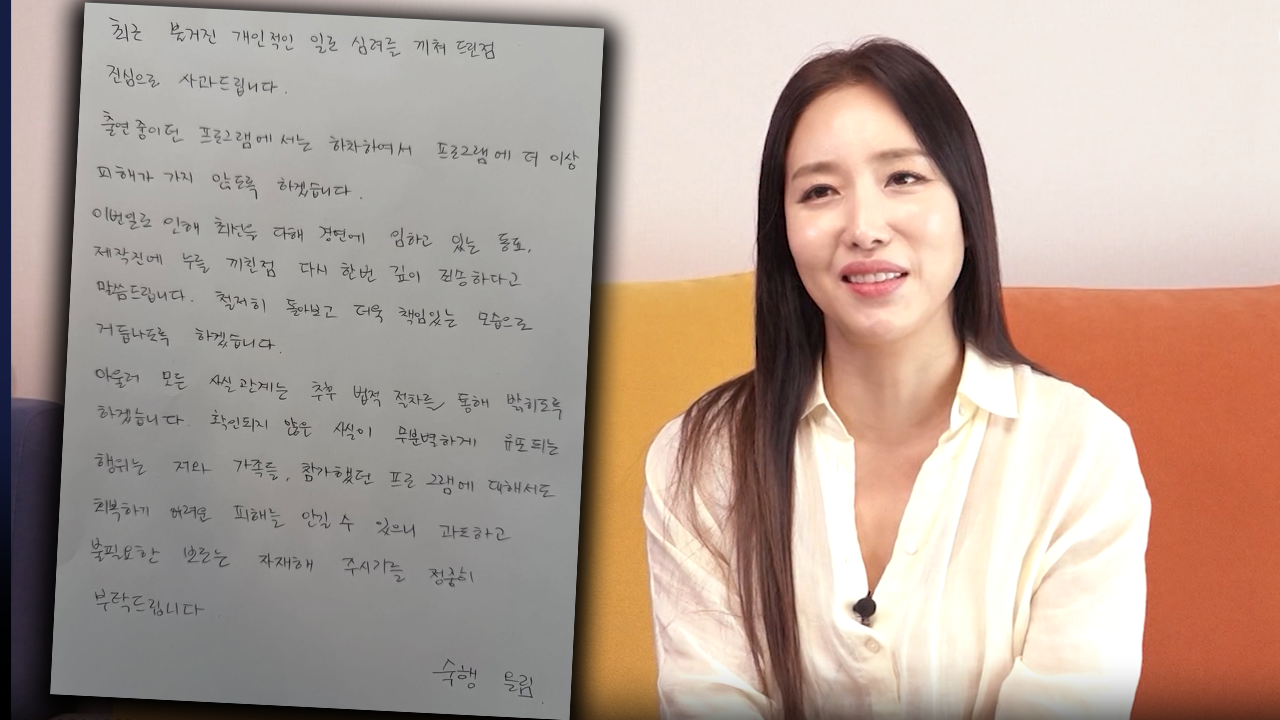 최근 불거진 개인적인 일로 심려를 끼쳐 드린점
진심으로 사과드립니다.
출연 중이던 프로그램에서는 하차하여서 프로그램에 더 이상
피해가 가지 않도록 하겠습니다.
이번일로 인해 최선을 다해 경연에 임하고 있는 동료,
제작진에 누를 끼친점 다시 한번 깊이 죄송하다고
말씀드립니다. 철저히 돌아보고 더욱 책임있는 모습으로
거듭나도록 하겠습니다.
아울러 모든 사실관계는 추후 법적 절차를 통해 밝히도록
하겠습니다. 확인되지 않은 사실이 무분별하게 유포되는
행위는 저와 가족들, 참가했던 프로그램에 대해서도
회복하기 어려운 피해를 안길 수 있으니 과도하고
불필요한 보도는 자재해 주시기를 정중히
부탁드립니다
숙행 올림.